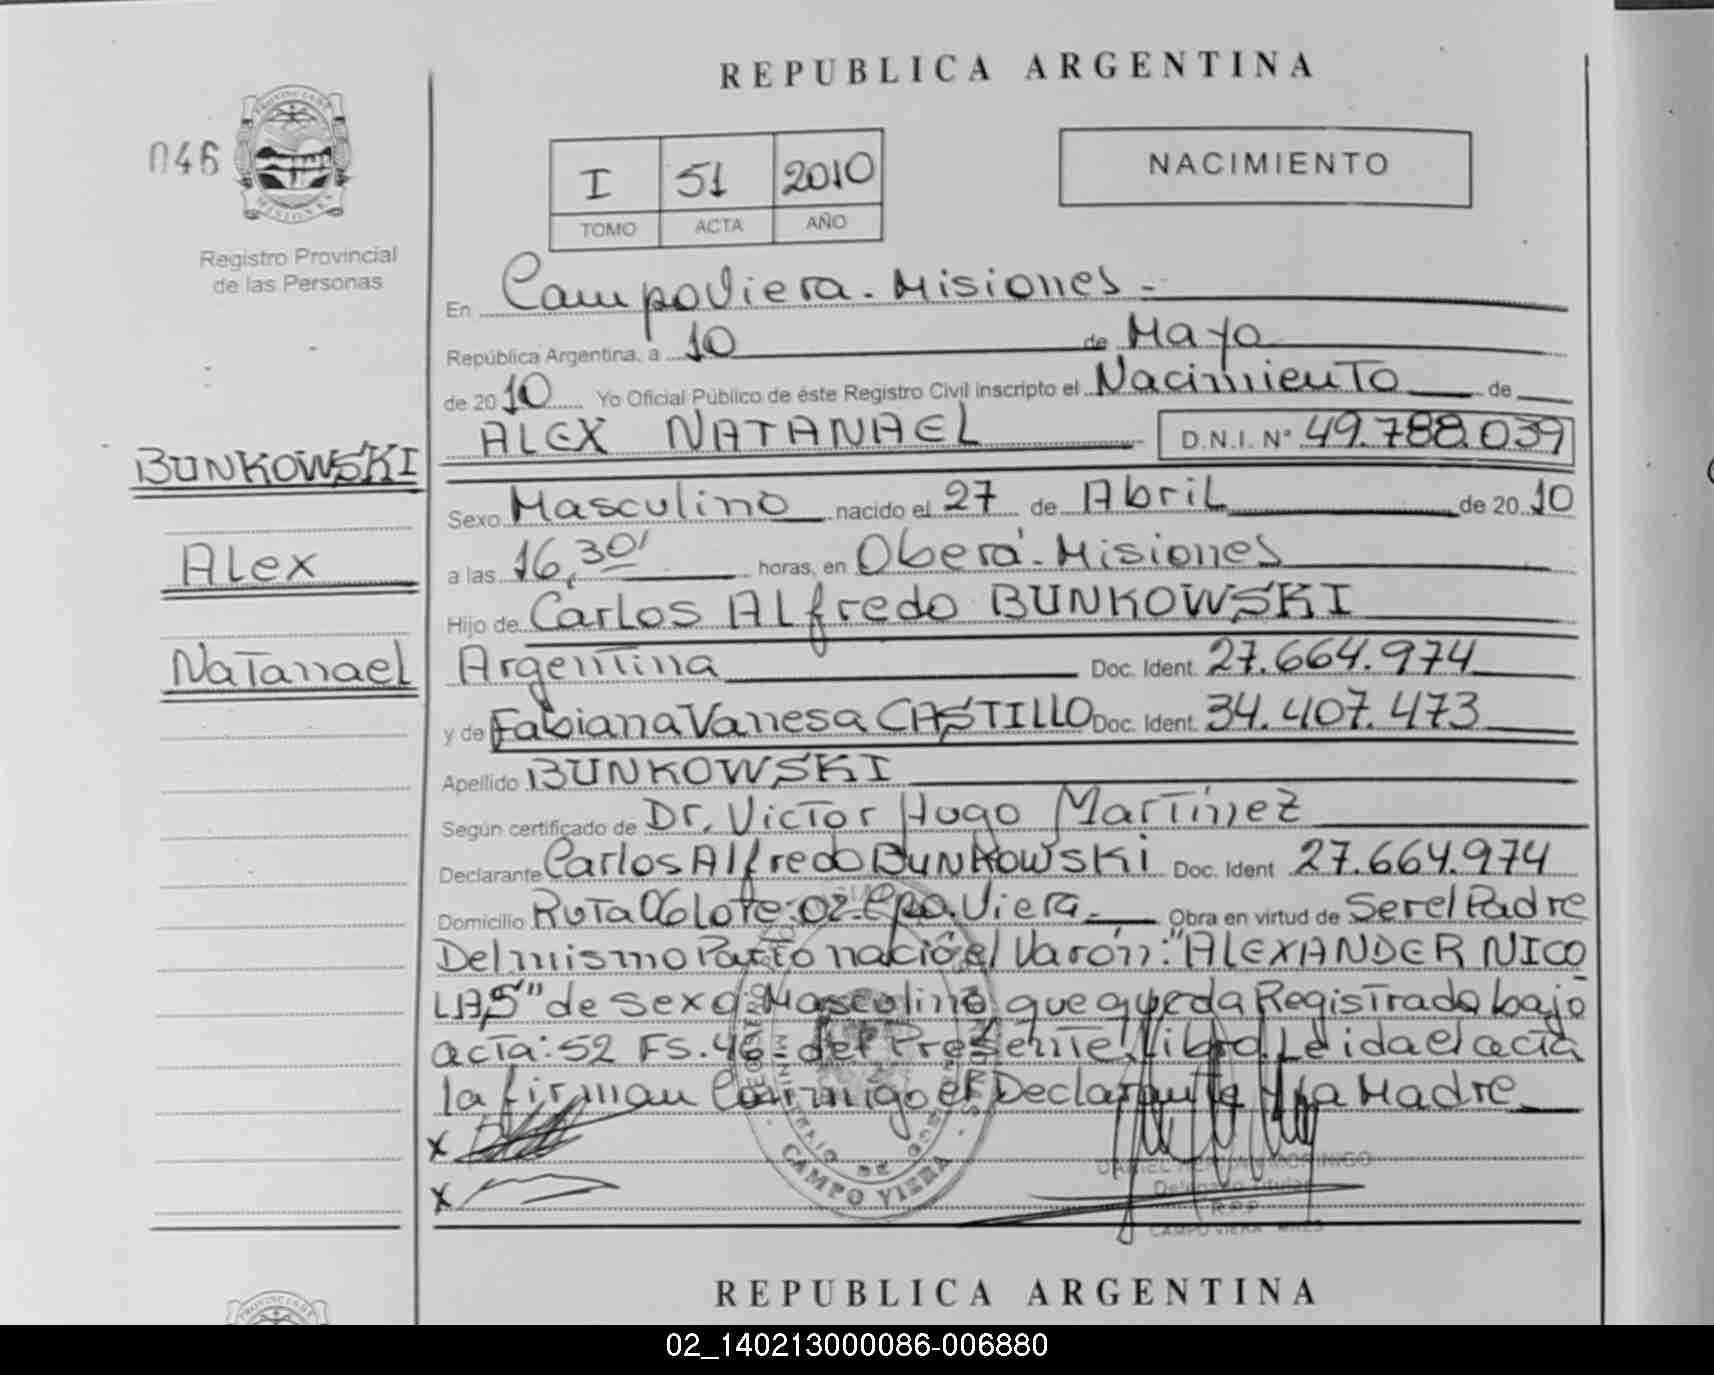 REPUBLICA ARGENTINA
046
PROVINCIA DE
MISIONES
Registro Provincial
de las Personas
I 51 2010
TOMO ACTA AÑO
NACIMIENTO
En Campo Viera - Misiones -
República Argentina, a 10 de Mayo
de 2010 Yo Oficial Público de éste Registro Civil inscripto el Nacimiento de
ALEX NATANAEL D.N.I. N° 49.788.039
BUNKOWSKI
Alex
Natanael
Sexo Masculino nacido el 27 de Abril de 2010
a las 16,30' horas, en Oberá - Misiones
Hijo de Carlos Alfredo BUNKOWSKI
Argentina Doc. Ident. 27.664.974
y de Fabiana Vanesa CASTILLO Doc. Ident. 34.407.473
Apellido BUNKOWSKI
Según certificado de Dr. Victor Hugo Martinez
Declarante Carlos Alfredo BUNKOWSKI Doc. Ident 27.664.974
Domicilio Ruta 06 Lote: 02 - Cpo. Viera - Obra en virtud de Ser el Padre
Del mismo Parto nació el Varón: "ALEXANDER NICO
LAS" de sexo: Masculino, que queda Registrado bajo
acta: 52 Fs. 46 - del Presente Libro. Leida el acta
la firman Conmigo el Declarante y la Madre
x
x
CAMPO VIERA
Delegado Titular
R.P.P.
CAMPO VIERA
REPUBLICA ARGENTINA
02_140213000086-006880